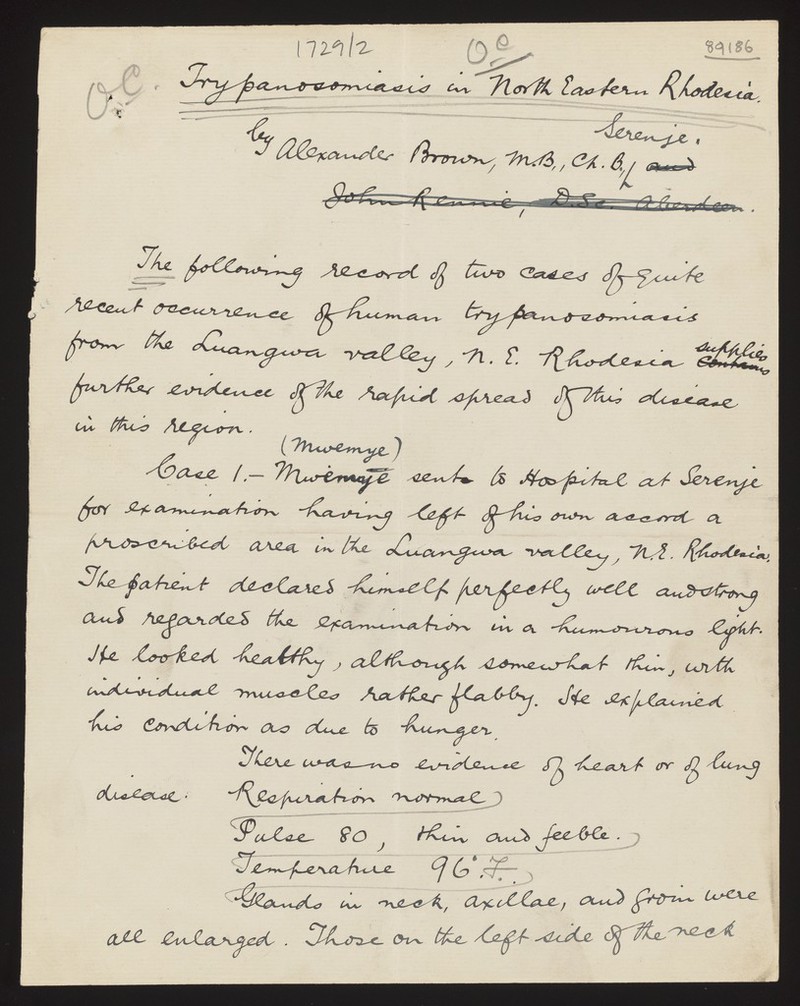 1729/2
O.C
89186
O.C.
Trypanosomiasis in North Eastern Rhodesia.
by Alexander Brown, M.B., Ch. B., Serenje. and
John Rennie, D.Sc. Aberdeen.
The following record of two cases of quite
recent occurrence of human trypanosomiasis
from the Luangwa valley, N. E. Rhodesia contains supplies
further evidence of the rapid spread of this disease
in this region.
(Mwemye)
Case 1.— Mwemye sent to Hospital at Serenje
for examination having left of his own accord a
proscribed area in the Luangwa valley, N.E. Rhodesia.
The patient declared himself perfectly well and strong
and regarded the examination in a humourous light.
He looked healthy, although somewhat thin, with
individual muscles rather flabby. He explained
his condition as due to hunger.
There was no evidence of heart or of lung
disease. Respiration normal
Pulse 80, thin and feeble.
Temperature 96°.F.
Glands in neck, axillae, and groin were
all enlarged. Those on the left side of the neck